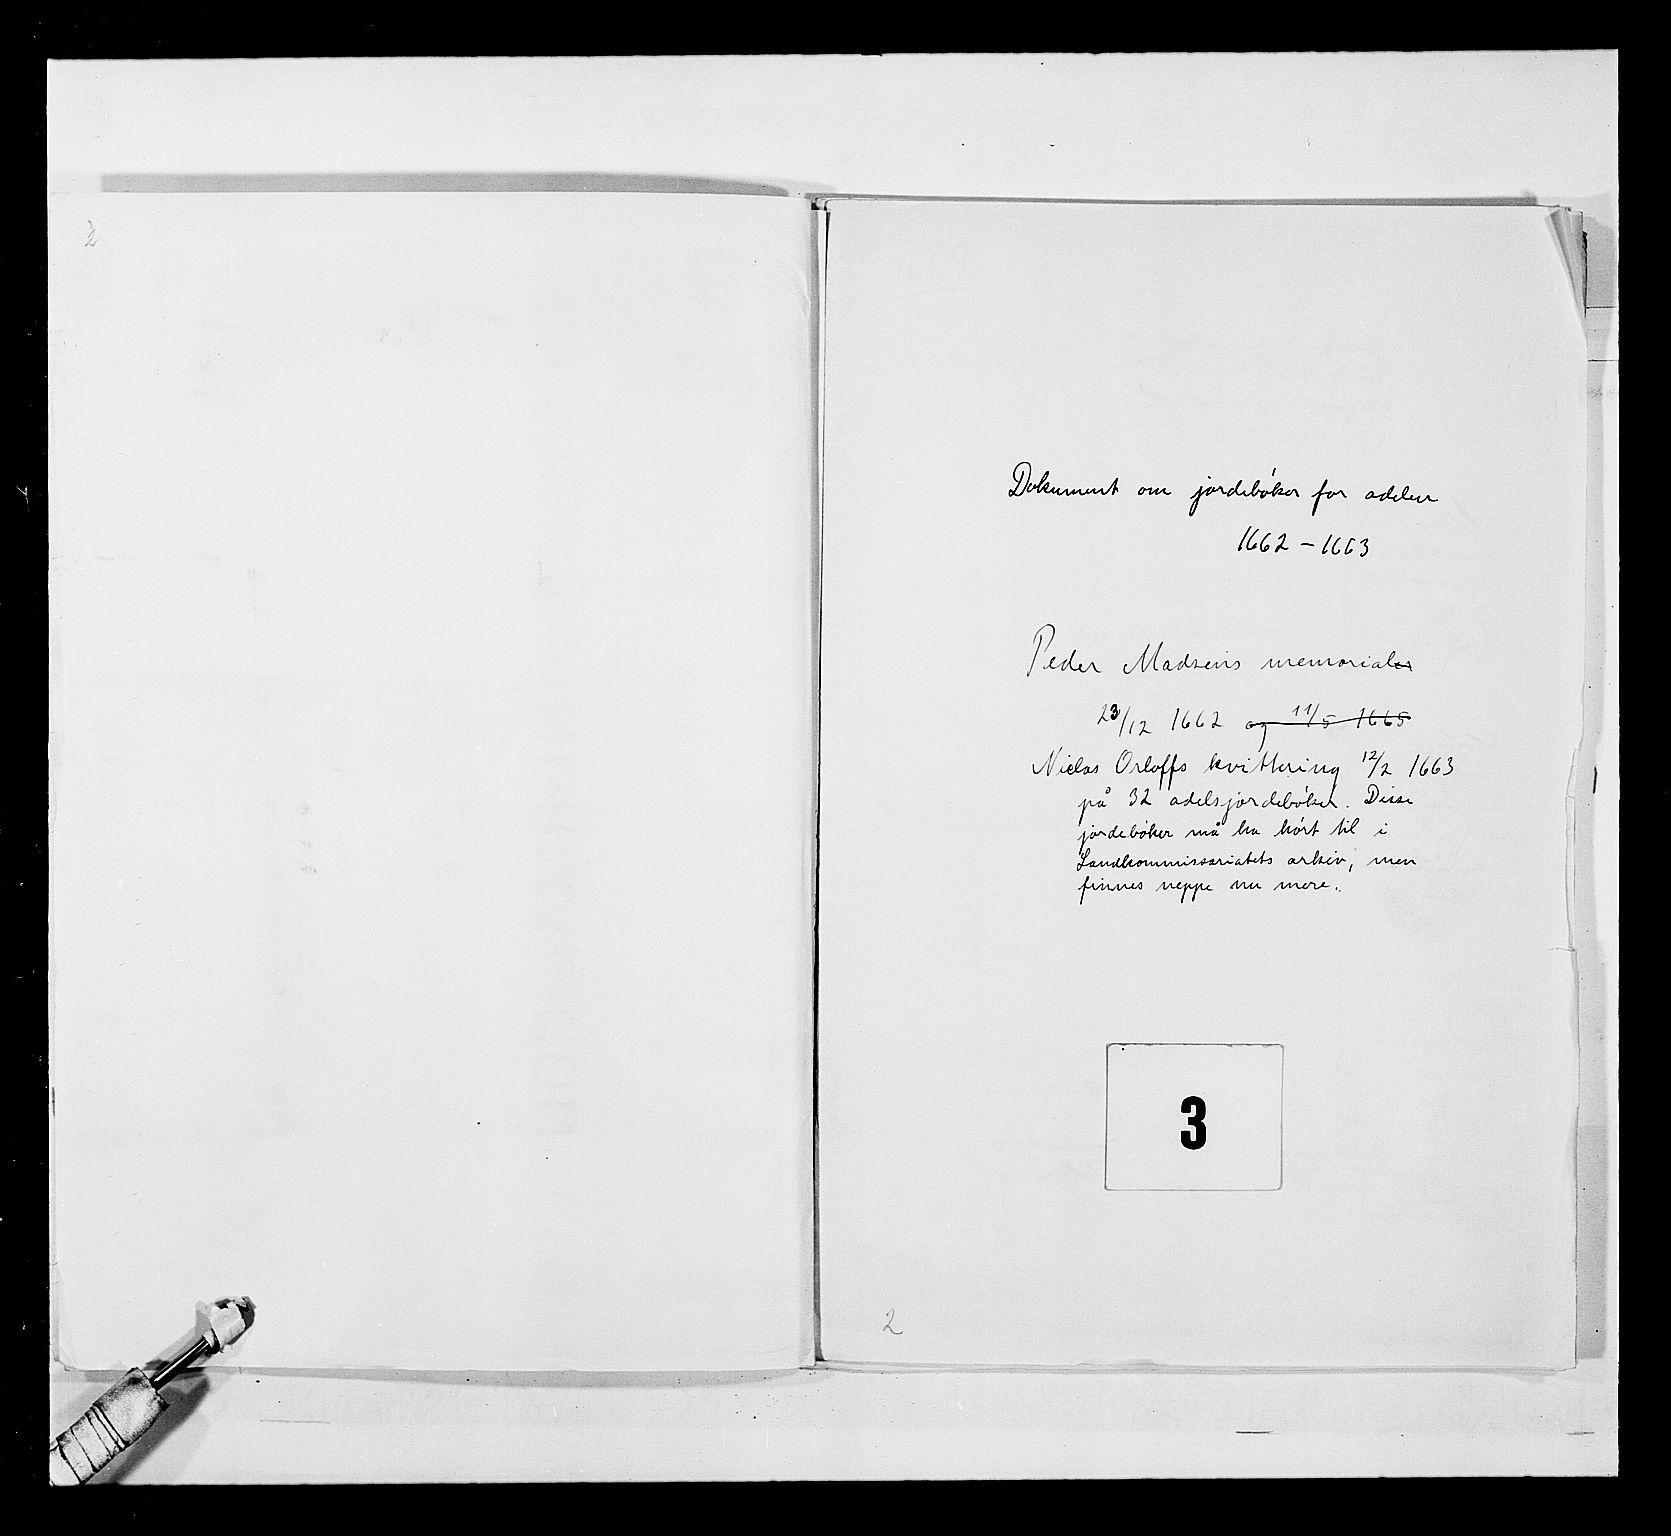 2
Dokument om jordebøker for adelen
1662 – 1663
Peder Madsens memorialer
23/12 1662 og 11/5 1665
Niclas Orloffs kvittering 12/2 1663
på 32 adelsjordebøker. Disse
jordebøker må ha hørt til i
Landkommissariatets arkiv, men
finnes neppe nu mere.
3
2